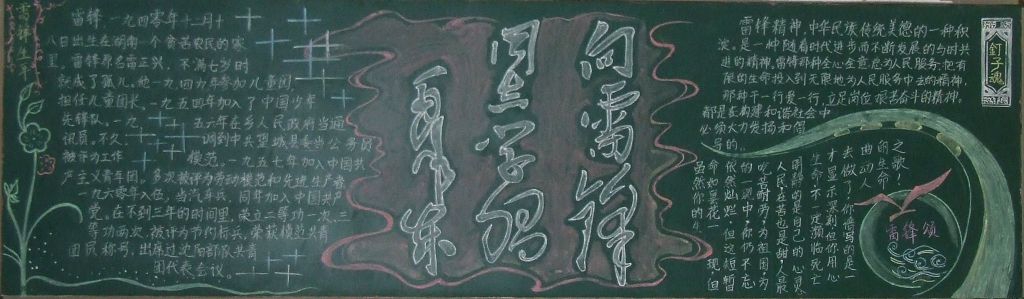 雷锋生平
雷锋,一九四零年十二月十
八日出生在湖南一个贫苦农民的家
里。雷锋原名雷正兴,不满七岁时
就成了孤儿。他一九四九年参加儿童团,
担任儿童团长。一九五四年加入了中国少年
先锋队。一九五六年在乡人民政府当通
讯员。不久,调到中共望城县委当公务员
被评为工作模范。一九五七年加入中国共
产主义青年团。多次被评为劳动模范和先进生产者
一九六零年入伍,当汽车兵,同年加入中国共产
党。在不到三年的时间里,荣立二等功一次、三
等功两次,被评为节约标兵,荣获模范共青
团员称号,出席过沈阳部队共青
团代表会议。
向雷锋
同志学习
毛泽东
雷锋精神,中华民族传统美德的一种积
淀。是一种随着时代进步而不断发展的与时共
进的精神。雷锋那种全心全意为人民服务,把有
限的生命投入到无限地为人民服务中去的精神,
那种干一行爱一行,立足岗位艰苦奋斗的精神。
都是在构建和谐社会中
必须大力发扬和倡
导的。
钉子魂
之歌,
的生命
曲动人
去做了你谱写是一
才显示深刻但你用心
生命不一定濒临死亡
周围的是自己的心灵
人民吃苦也是甜人最
吃亏啊为为祖国为
的一现中你仍不忘
依然灿烂但这短暂
命如昙花一现但
虽然你的生
雷锋颂